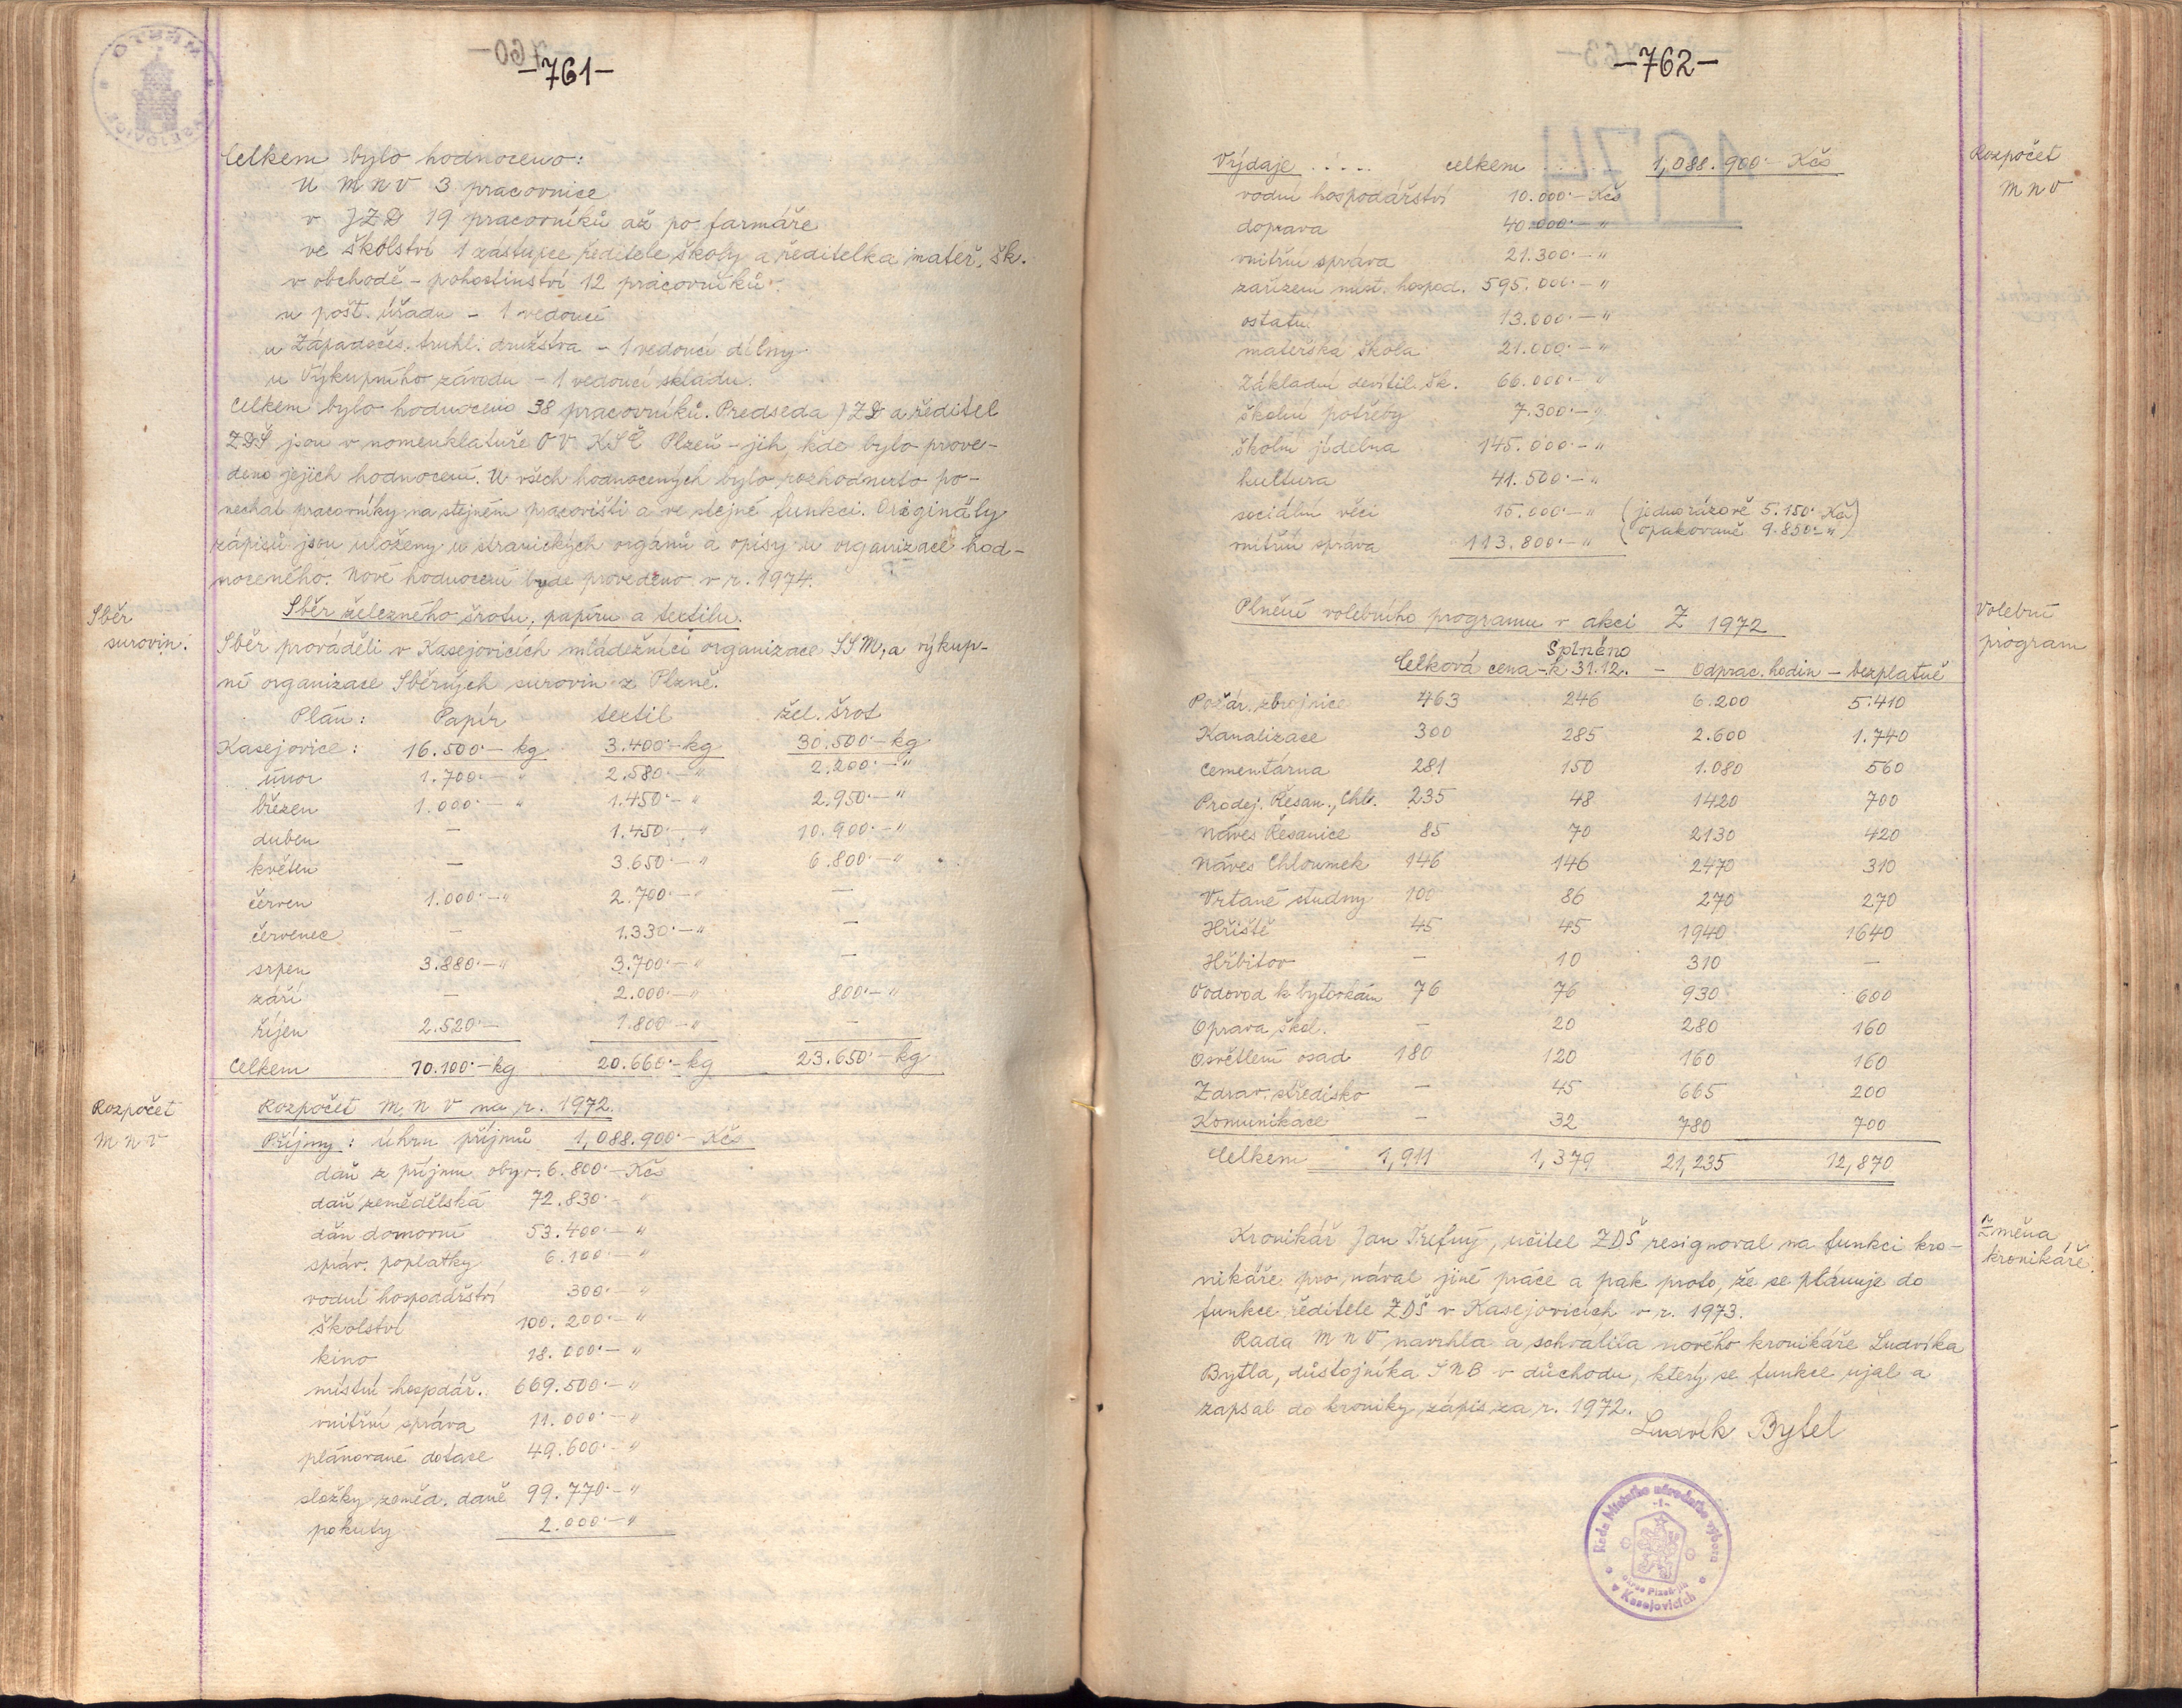 -761-
Celkem bylo hodnoceno:
U M N V 3 pracovnice
v JZD 19 pracovníků až po farmáře
ve školství 1 zástupce ředitele školy a ředitelka mateř. šk.
v obchodě - pohostinství 12 pracovníků.
u pošt. úřadu - 1 vedoucí
u Západočes. truhl. družstva - 1 vedoucí dílny
u Výkupního závodu - 1 vedoucí skladu.
Celkem bylo hodnoceno 38 pracovníků. Predseda JZD a ředitel
ZDŠ jsou v nomenklatuře OV KSČ Plzeň - jih, kde bylo prove-
deno jejich hodnocení. U všech hodnocených bylo rozhodnuto po-
nechat pracovníky na stejném pracovišti a ve stejné funkci. Originály
zápisů jsou uloženy u stranických orgánů a opisy u organizace hod-
noceného. Nové hodnocení bude provedeno v r. 1974.
Sběr
surovin.
Sběr železného šrotu, papíru a textilu.
Sběr prováděli v Kasejovicích mládežníci organizace SSM, a výkup-
ní organizace Sběrných surovin z Plzně.
Plán: Papír textil žel. šrot
Kasejovice: 16.500·- kg 3.400·- kg 30.500·- kg
únor 1.700·- " 2.580·- " 2.200·- "
březen 1.000·- " 1.450·- " 2.950·- "
duben - 1.450·- " 10.900·- "
květen - 3.650·- " 6.800·- "
červen 1.000·- " 2.700·- " -
červenec - 1.330·- " -
srpen 3.880·- " 3.700·- " -
září - 2.000·- " 800·- "
říjen 2.520·- 1.800·- " -
Celkem 10.100·- kg 20.660·- kg 23.650·- kg
Rozpočet
M N V
Rozpočet M N V na r. 1972.
Příjmy: úhrn příjmů 1,088.900·- Kčs
daň z príjmu obyv. 6.800·- Kčs
daň zemědělská 72.830·- "
daň domovní 53.400·- "
správ. poplatky 6.100·- "
vodní hospodářství 300·- "
školství 100.200·- "
kino 18.000·- "
místní hospdář. 669.500·- "
vnitřní správa 11.000·- "
plánované dotace 49.600·- "
složky zeměd. daně 99.770·- "
pokuty 2.000·- "
-762-
Rozpočet
M N V
Výdaje ..... celkem ..... 1,088.900·- Kčs
vodní hospodářství 10.000·- Kčs
doprava 40.000·- "
vnitřní správa 21.300·- "
zařízení míst. hospod. 595.000·- "
ostatní 13.000·- "
mateřská škola 21.000·- "
Základní devítil. šk. 66.000·- "
školní potřeby 7.300·- "
školní jídelna 145.000·- "
kultura 41.500·- "
sociální věci 15.000·- " (jednorázově 5.150·- Kčs
opakovaně 9.850·- ")
vnitřní správa 113.800·- "
Volební
program
Plnění volebního programu v akci Z 1972
Splněno
Celková cena - k 31.12. - odprac. hodin - bezplatně
Požár. zbrojnice 463 246 6.200 5.410
Kanalizace 300 285 2.600 1.740
Cementárna 281 150 1.080 560
Prodej. Řesan., Chl. 235 48 1420 700
Náves Řesanice 85 70 2130 420
Náves Chloumek 146 146 2470 310
Vrtané studny 100 86 270 270
Hřiště 45 45 1940 1640
Hřbitov - 10 310 -
Vodovod k bytovkám 76 76 930 600
Oprava škol. - 20 280 160
Osvětlení osad 180 120 160 160
Zdrav. středisko - 45 665 200
Komunikace - 32 780 700
Celkem 1,911 1,379 21,235 12,870
Změna
kronikáře.
Kronikář Jan Trefný, učitel ZDŠ resignoval na funkci kro-
nikáře pro nával jiné práce a pak proto, že se plánuje do
funkce ředitele ZDŠ v Kasejovicích v r. 1973.
Rada M N V navrhla a schválila nového kronikáře Ludvíka
Bytla, důstojníka SNB v důchodu, který se funkce ujal a
zapsal do kroniky zápis za r. 1972.
Ludvík Bytel
Rada Místního národního výboru
-1-
okres Plzeň-jih
v Kasejovicích